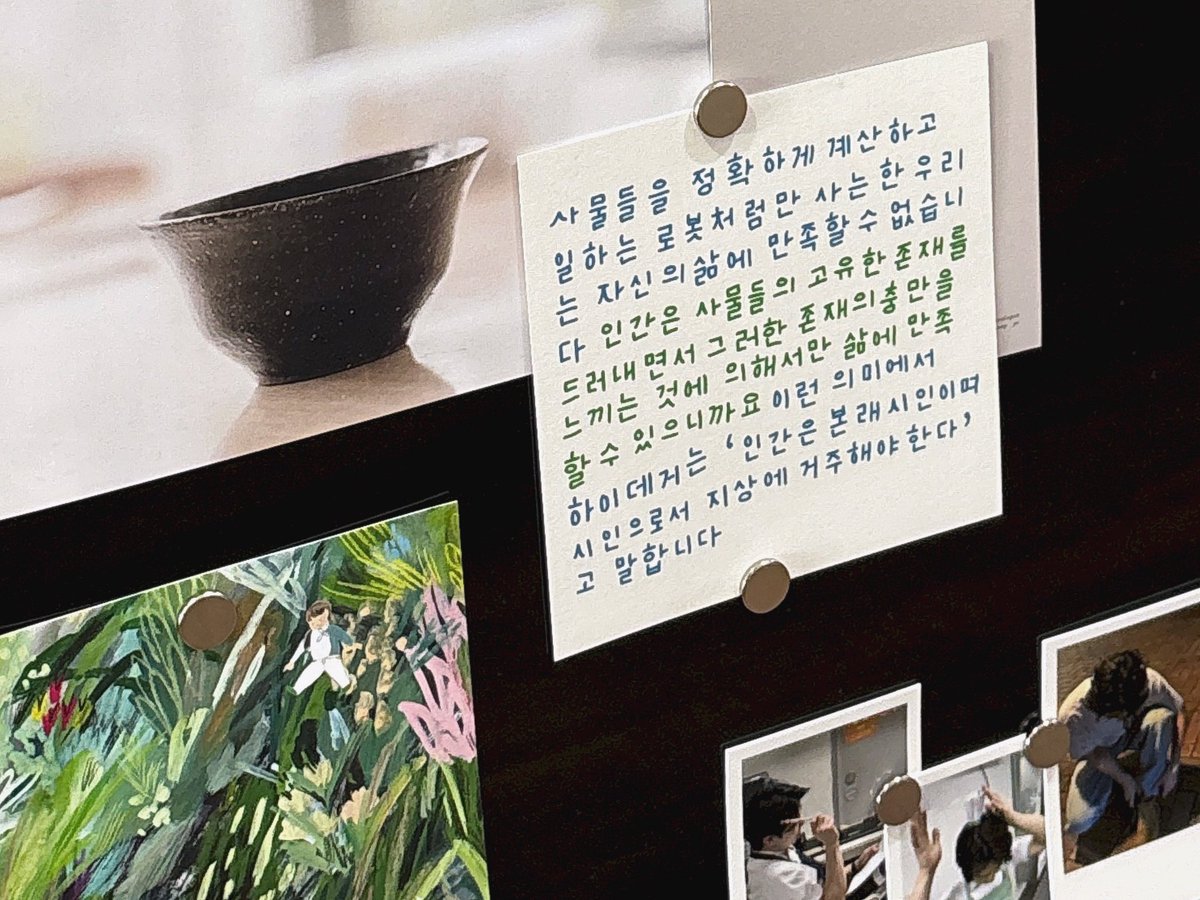 사물들을 정확하게 계산하고
일하는 로봇처럼만 사는 한 우리
는 자신의 삶에 만족할 수 없습니
다 인간은 사물들의 고유한 존재를
드러내면서 그러한 존재의 충만을
느끼는 것에 의해서만 삶에 만족
할 수 있으니까요 이런 의미에서
하이데거는 ‘인간은 본래 시인이며
시인으로서 지상에 거주해야 한다’
고 말합니다